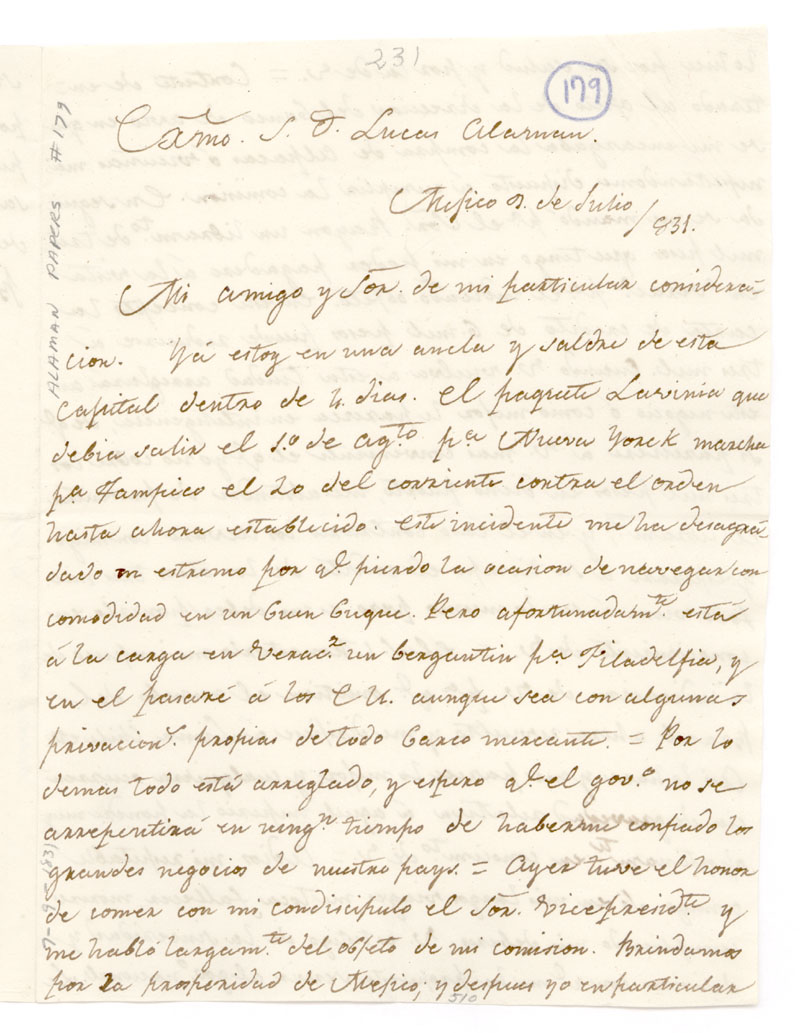 231
179
ALAMAN PAPERS #179
Exmo. S. D. Lucas Alaman.
Mejico 9. de Julio
/831.
Mi amigo y Sor. de mi particular considera-
cion. Yá estoy en una ancla y saldre de esta
Capital dentro de 4. dias. El paquete Lavinia que
debia salir el 1.º de agto. pa. Nueva Yorck marcha
pa. Tampico el 20 del corriente contra el orden
hasta ahora establecido. Este incidente me ha desagra-
dado en estremo por qe. pierdo la ocasion de navegar con
comodidad en un buen buque. Pero afortunadamte. está
á la carga en Veracz. un bergantin pa. Filadelfia, y
en el pasaré á los E U. aunque sea con algunas
privaciones. propias de todo barco mercante. = Por lo
demas todo está arreglado, y espero qe. el gov.º no se
arrepentirá en ningn. tiempo de haberme confiado los
grandes negocios de nuestro pays. = Ayer tuve el honor
de comer con mi condiscipulo el Sor. Vicepresidte. y
me habló largamte. del objeto de mi comision. Brindamos
por la prosperidad de Mejico; y despues yo en particular
7-9-(831)
510